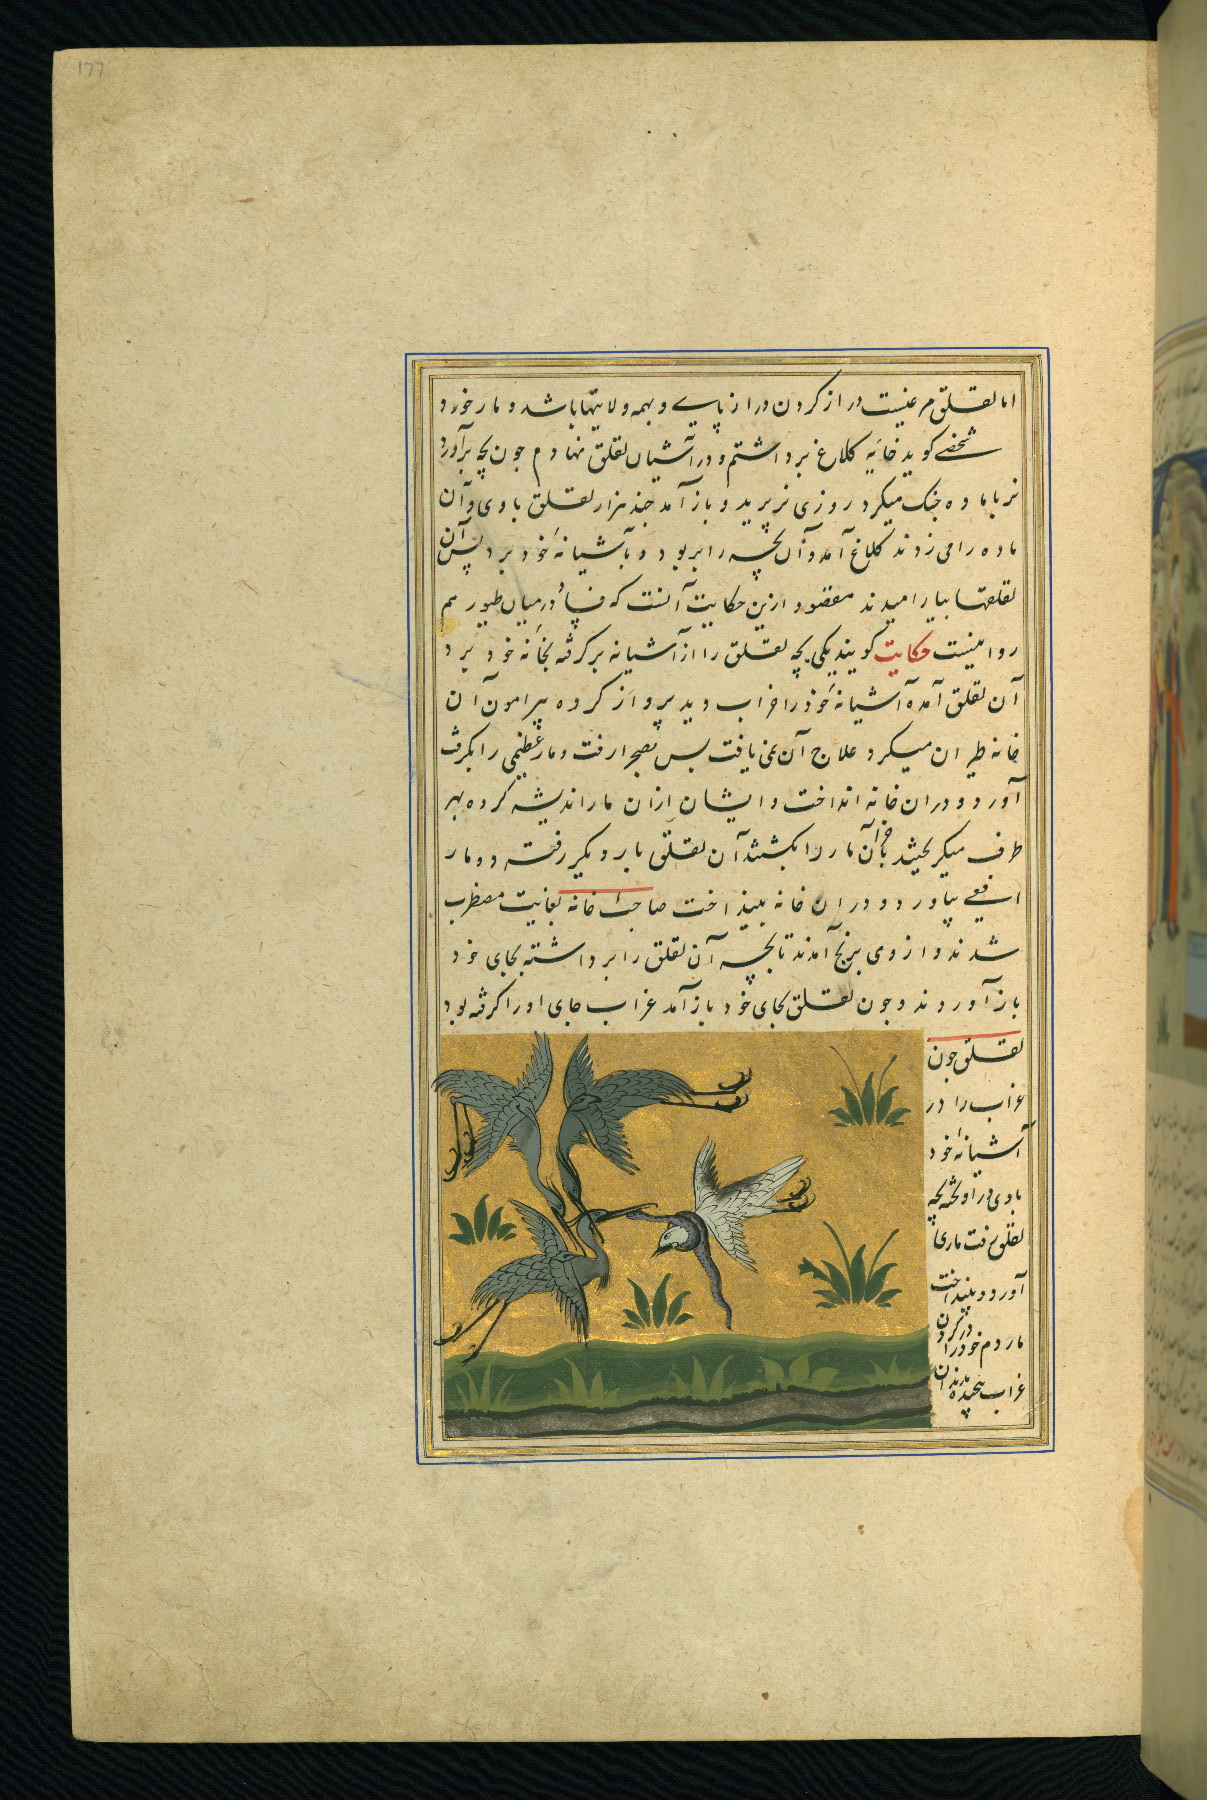 ١٧٧
اما لقلق مرغیست دراز کردن دراز پایے و بهمه ولایتها باشد و مار خورد
شخصے کوید خایه کلاغ برداشتم و در آشیان لقلق نهادم جون بچه برآورد
نر با ماده جنک میکرد روزی نر پرید و باز آمد جند هزار لقلق با وی و آن
ماده را می زدند کلاغ آمد و آن بچه را بربود و بآشیانه خود برد پس آن
لقلقها بیارامیدند مقصود ازین حکایت آنست که در میان طیور هم
روا نیست حکایت کویند یکی بچه لقلق را از آشیانه برکرفته بخانه خود برد
آن لقلق آمده آشیانه خود را خراب دید پرواز کرده پیرامون آن
خانه طیران میکرد علاج آن نمی یافت پس بصحرا رفت و مار عظیمی را بکرفت
آورد و در ان خانه انداخت و ایشان ازان مار اندیشه کرده بهر
طرف میکریختند تا آخر آن مار را بکشتند آن لقلق بار دیکر رفته دو مار
افعے بیاورد و در ان خانه بینداخت صاحب خانه بغایت مضطرب
شدند و از وی برنج آمدند تا بچه آن لقلق را برداشته بجای خود
باز آوردند و جون لقلق بجای خود باز آمد غراب جای او را کرفته بود
لقلق جون
غراب را در
آشیانه خود
با وی در اویخته بچه
لقلق رفت ماری
آورد و بینداخت
مار دم خود را در کردن
غراب پیچیده